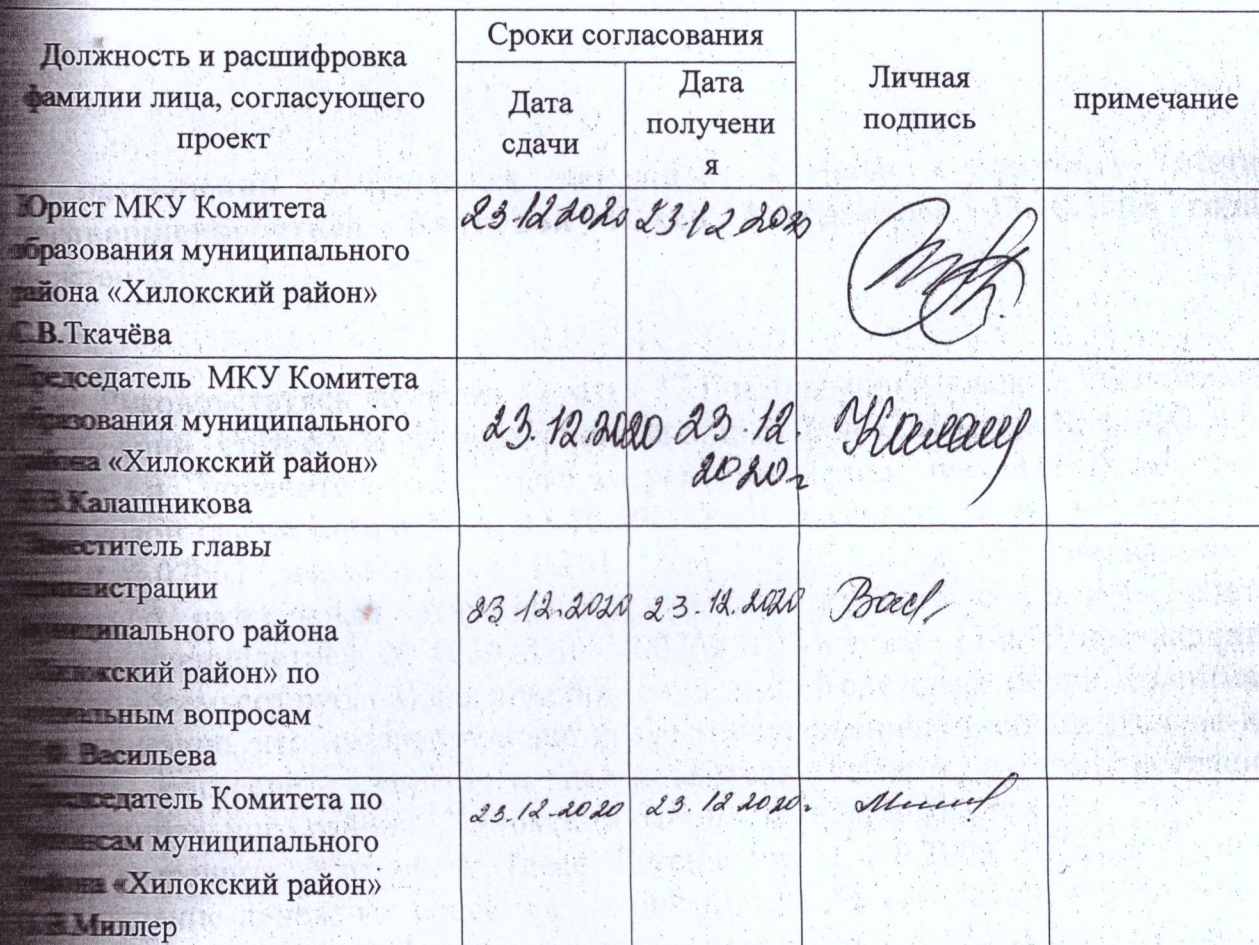 Должность и расшифровка
фамилии лица, согласующего
проект
Сроки согласования
Дата
сдачи
Дата
получени
я
Личная
подпись
примечание
Юрист МКУ Комитета
образования муниципального
района «Хилокский район»
С.В.Ткачёва
23.12.2020
23.12.2020
Председатель МКУ Комитета
образования муниципального
района «Хилокский район»
Калашникова
23.12.2020
23.12.
2020г
Калаш
Заместитель главы
администрации
муниципального района
«Хилокский район» по
социальным вопросам
Васильева
23.12.2020
23.12.2020
Вас
Председатель Комитета по
финансам муниципального
района «Хилокский район»
Миллер
23.12.2020
23.12.2020г